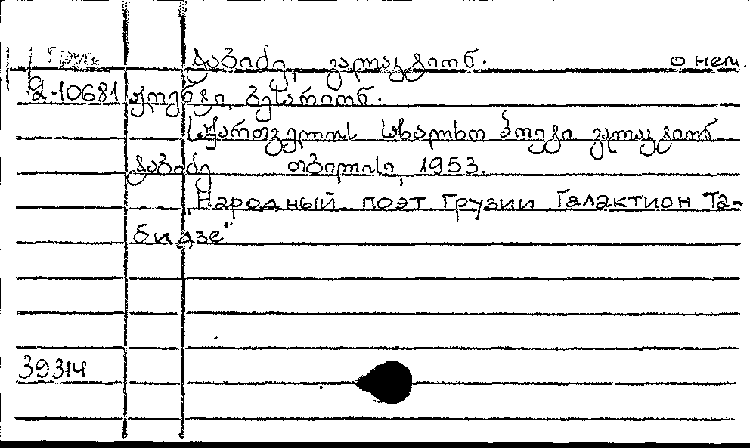 Груз. ტაბიძე, გალაკტიონ. о нем.
2-10681 ჟღენტი, ბესარიონ.
საქართველოს სახალხო პოეტი გალაკტიონ
ტაბიძე თბილისი, 1953.
„Народный поэт Грузии Галактион Та-
бидзе"
39314